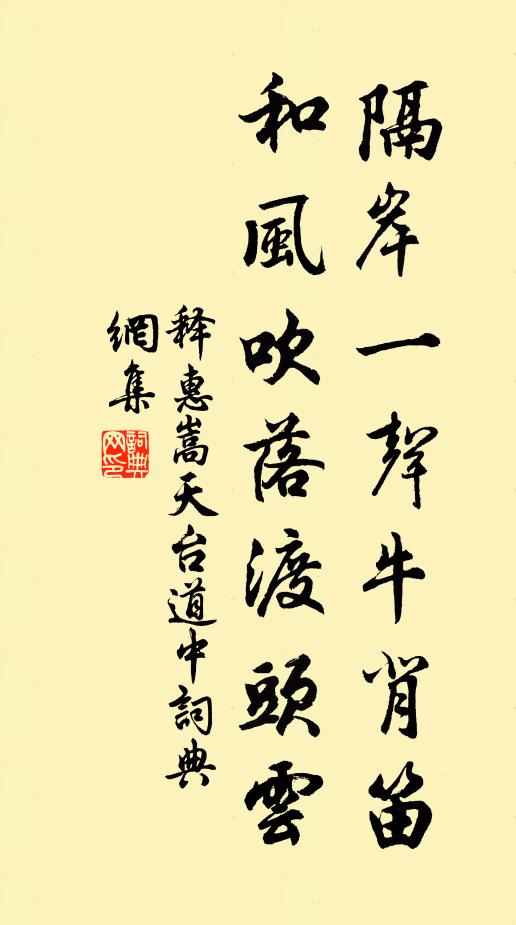 隔岸一聲牛背笛
和風吹落渡頭雲
釋惠嵩天台道中詞典
網集
詞典
网印